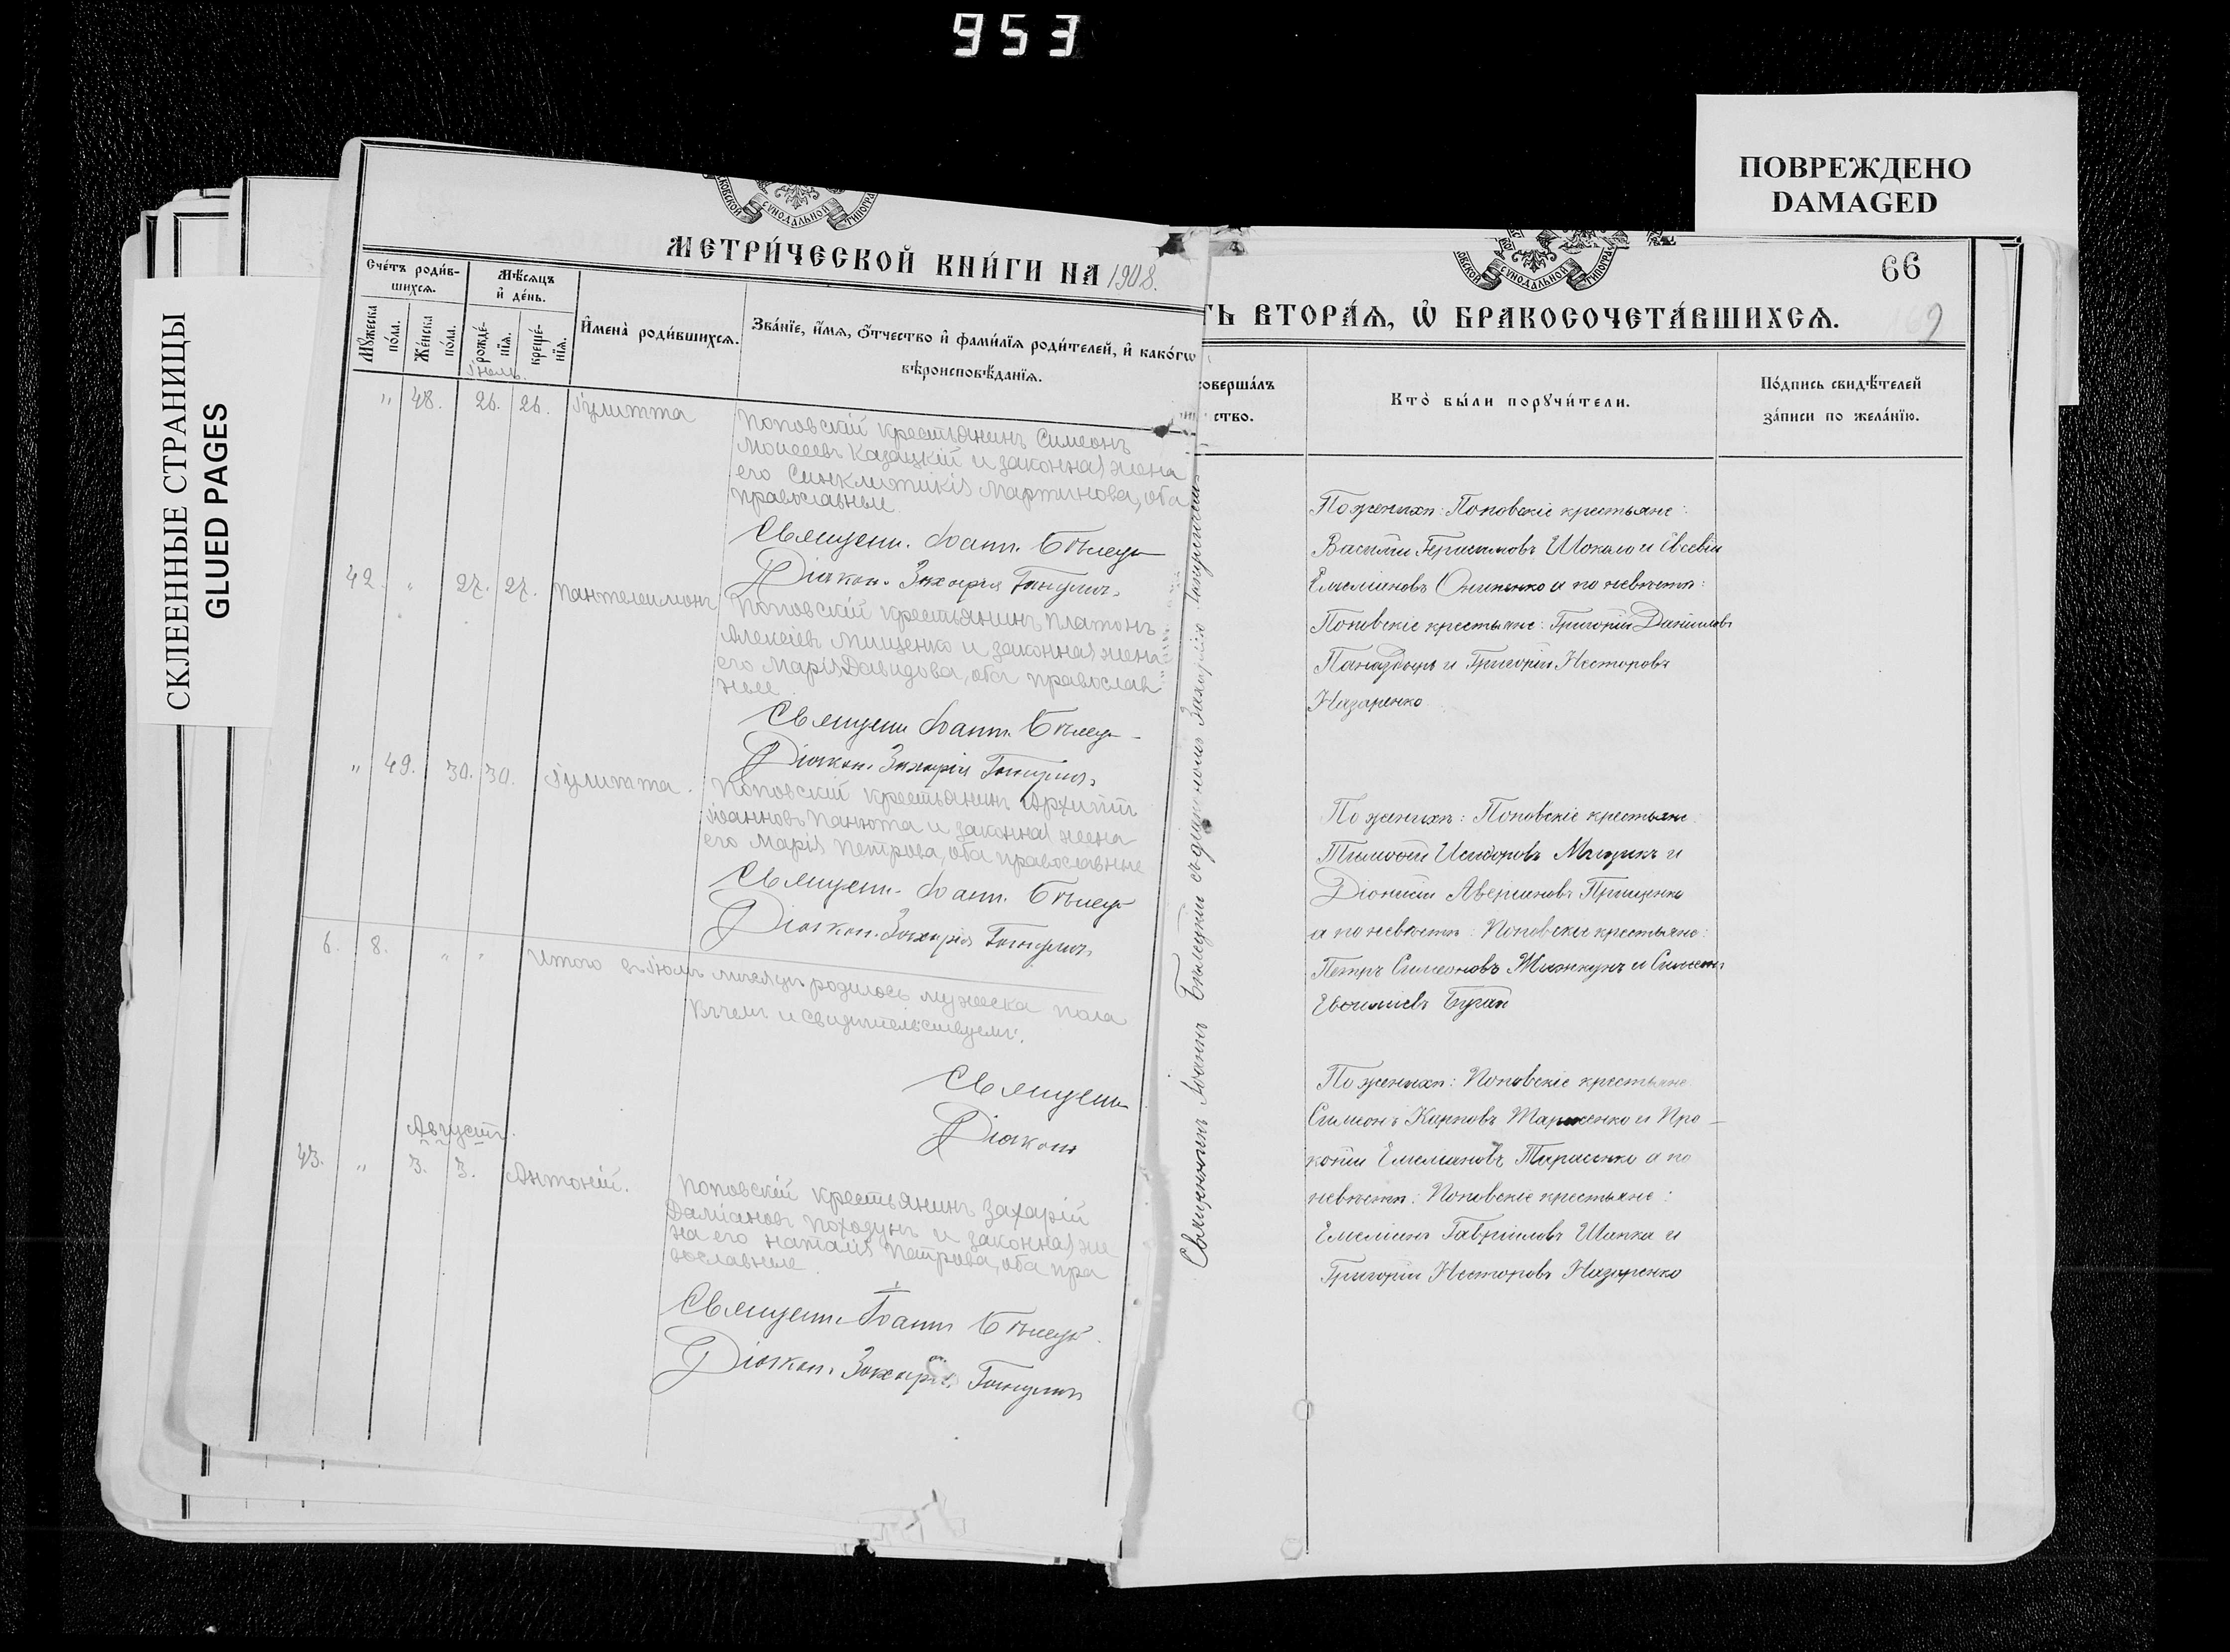 953
ПОВРЕЖДЕНО
DAMAGED
СКЛЕЕННЫЕ СТРАНИЦЫ
GLUED PAGES
МЕТРИ́ЧЕСКОЙ КНИ́ГИ НА 1908.
Сче́тъ роди́в-
шихсѧ.
Мѣ́сѧцъ
и҆ де́нь.
Мꙋ́жеска
по́ла.
Же́нска
по́ла.
рожде́-
нїѧ.
креще́-
нїѧ.
И҆мена̀ роди́вшихсѧ.
Зва́нїе, и҆́мѧ, ѻ҆́тчество и҆ фами́лїѧ роди́телей, и҆ како́гѡ
вѣроисповѣ́данїѧ.
Іюль.
" 48. 26. 26. Іулитта
Поповскій крестьянинъ Симеонъ
Моисеевъ Казацкій и законная жена
его Синклитикія Мартинова, оба
православные
Священн. Іоанн. Бѣлец
Діакон. Захарія
42. " 27. 27. Пантелеимонъ
Поповскій крестьянинъ Платонъ
Алексіевъ Мищенко и законная жена
его Марія Давидова, оба православ
ные
Священн Іоанн. Бѣлец
Діакон. Захарія
" 49. 30. 30. Іулитта.
Поповскій крестьянинъ Архиппъ
Іоанновъ Панюта и законная жена
его Марія Петрова, оба православные
Священн. Іоанн. Бѣлец
Діакон. Захарія
6. 8. " " Итого въ Іюлѣ мѣсяцѣ родилось мужеска пола
Въ чемъ и свидѣтельствуемъ:
Священн
Діакон
Августъ.
43. " 3. 3. Антоній.
Поповскій крестьянинъ Захарій
Даміановъ Походунъ и законная же
на его Наталія Петрова, оба пра
вославные
Священн. Іоанн Бѣлец
Діакон. Захарія
Священникъ Іоаннъ Бѣлецкій съ діакономъ Захаріею
66
9
ТЬ ВТОРА́Ѧ, Ѡ҆ БРАКОСОЧЕТА́ВШИХСѦ.
соверша́лъ
ство.
Кто̀ бы́ли порꙋчи́тели.
По́дпись свидѣ́телей
за́писи по жела́нїю.
По женихѣ: Поповскіе крестьяне:
Василій Герасимовъ Шокало и Евсевій
Емеліановъ Онипенко а по невѣстѣ:
Поповскіе крестьяне: Григорій Даніиловъ
и Григорій Несторовъ
Назаренко
По женихѣ: Поповскіе крестьяне
Тимофей Исидоровъ и
Діонисій Аверіановъ Прищенко
а по невѣстѣ: Поповскіе крестьяне:
Петръ Симеоновъ и Симеонъ
Евфиміевъ Бугай
По женихѣ: Поповскіе крестьяне
Симеонъ Карповъ и Про-
копій Емеліановъ Тарасенко а по
невѣстѣ: Поповскіе крестьяне:
Емеліанъ Гавріиловъ Шапка и
Григорій Несторовъ Назаренко